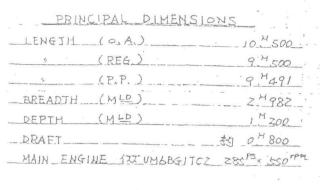 PRINCIPAL DIMENSIONS
LENGTH (O.A.) 10.ᴹ500
〃 (REG.) 9.ᴹ500
〃 (P.P.) 9.ᴹ491
BREADTH (MLD) 2.ᴹ982
DEPTH (MLD) 1.ᴹ300
DRAFT 約 0.ᴹ800
MAIN ENGINE UM6BG1TCZ